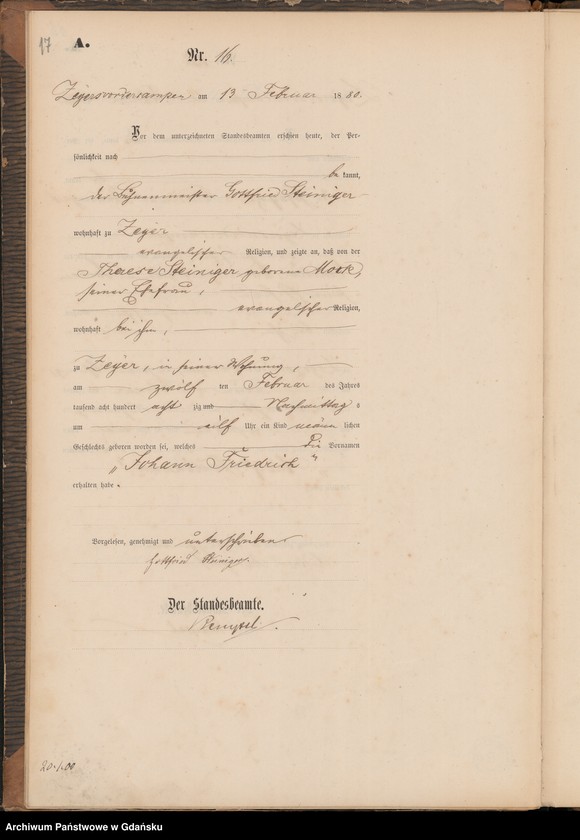 17 A.
Nr. 16.
Zeyersvorderkampen am 13 Februar 1880.
Vor dem unterzeichneten Standesbeamten erschien heute, der Per-
sönlichkeit nach
be kannt,
der Bühnenmeister Gottfried Steiniger
wohnhaft zu Zeyer
evangelischer Religion, und zeigte an, daß von der
Therese Steiniger geborene Mock,
seiner Ehefrau,
evangelischer Religion,
wohnhaft bei ihm,
zu Zeyer, in seiner Wohnung,
am zwölf ten Februar des Jahres
tausend acht hundert acht zig und Nachmittag s
um eilf Uhr ein Kind männ lichen
Geschlechts geboren worden sei, welches die Vornamen
„Johann Friedrich“
erhalten habe.
Vorgelesen, genehmigt und unterschrieben
Gottfried Steiniger.
Der Standesbeamte.
Archiwum Państwowe w Gdańsku